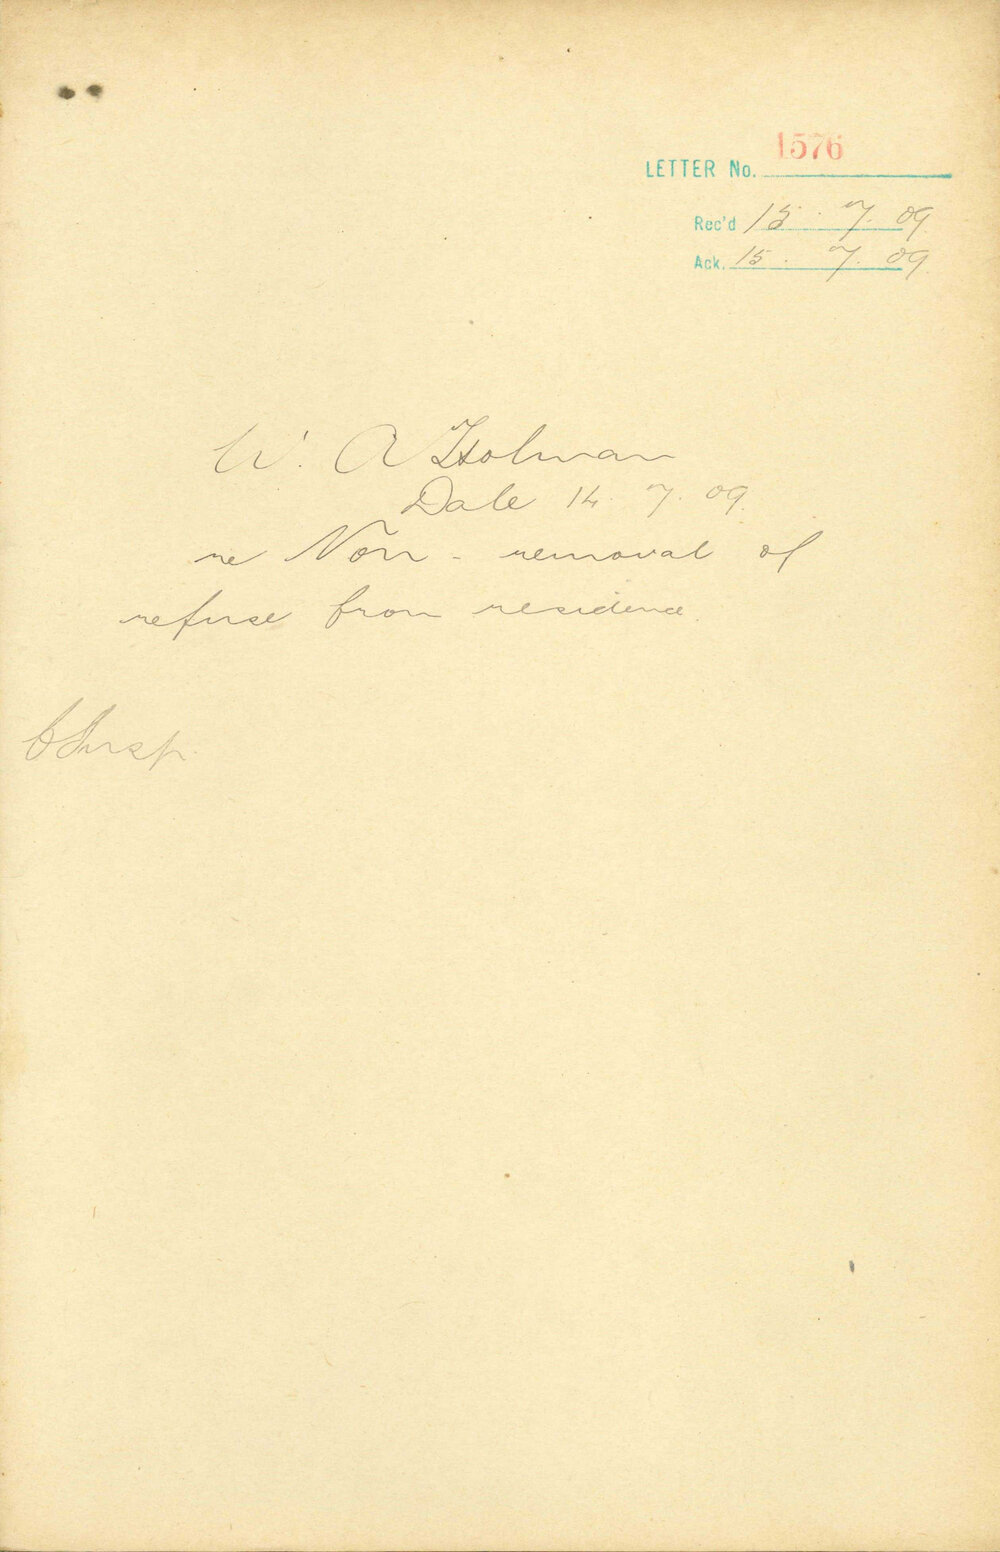 LETTER No. 1576
Rec'd 15. 7. 09.
Ack. 15. 7. 09.
W. A Holman
Date 14. 7. 09.
re Non - removal of
refuse from residence.
C Insp.